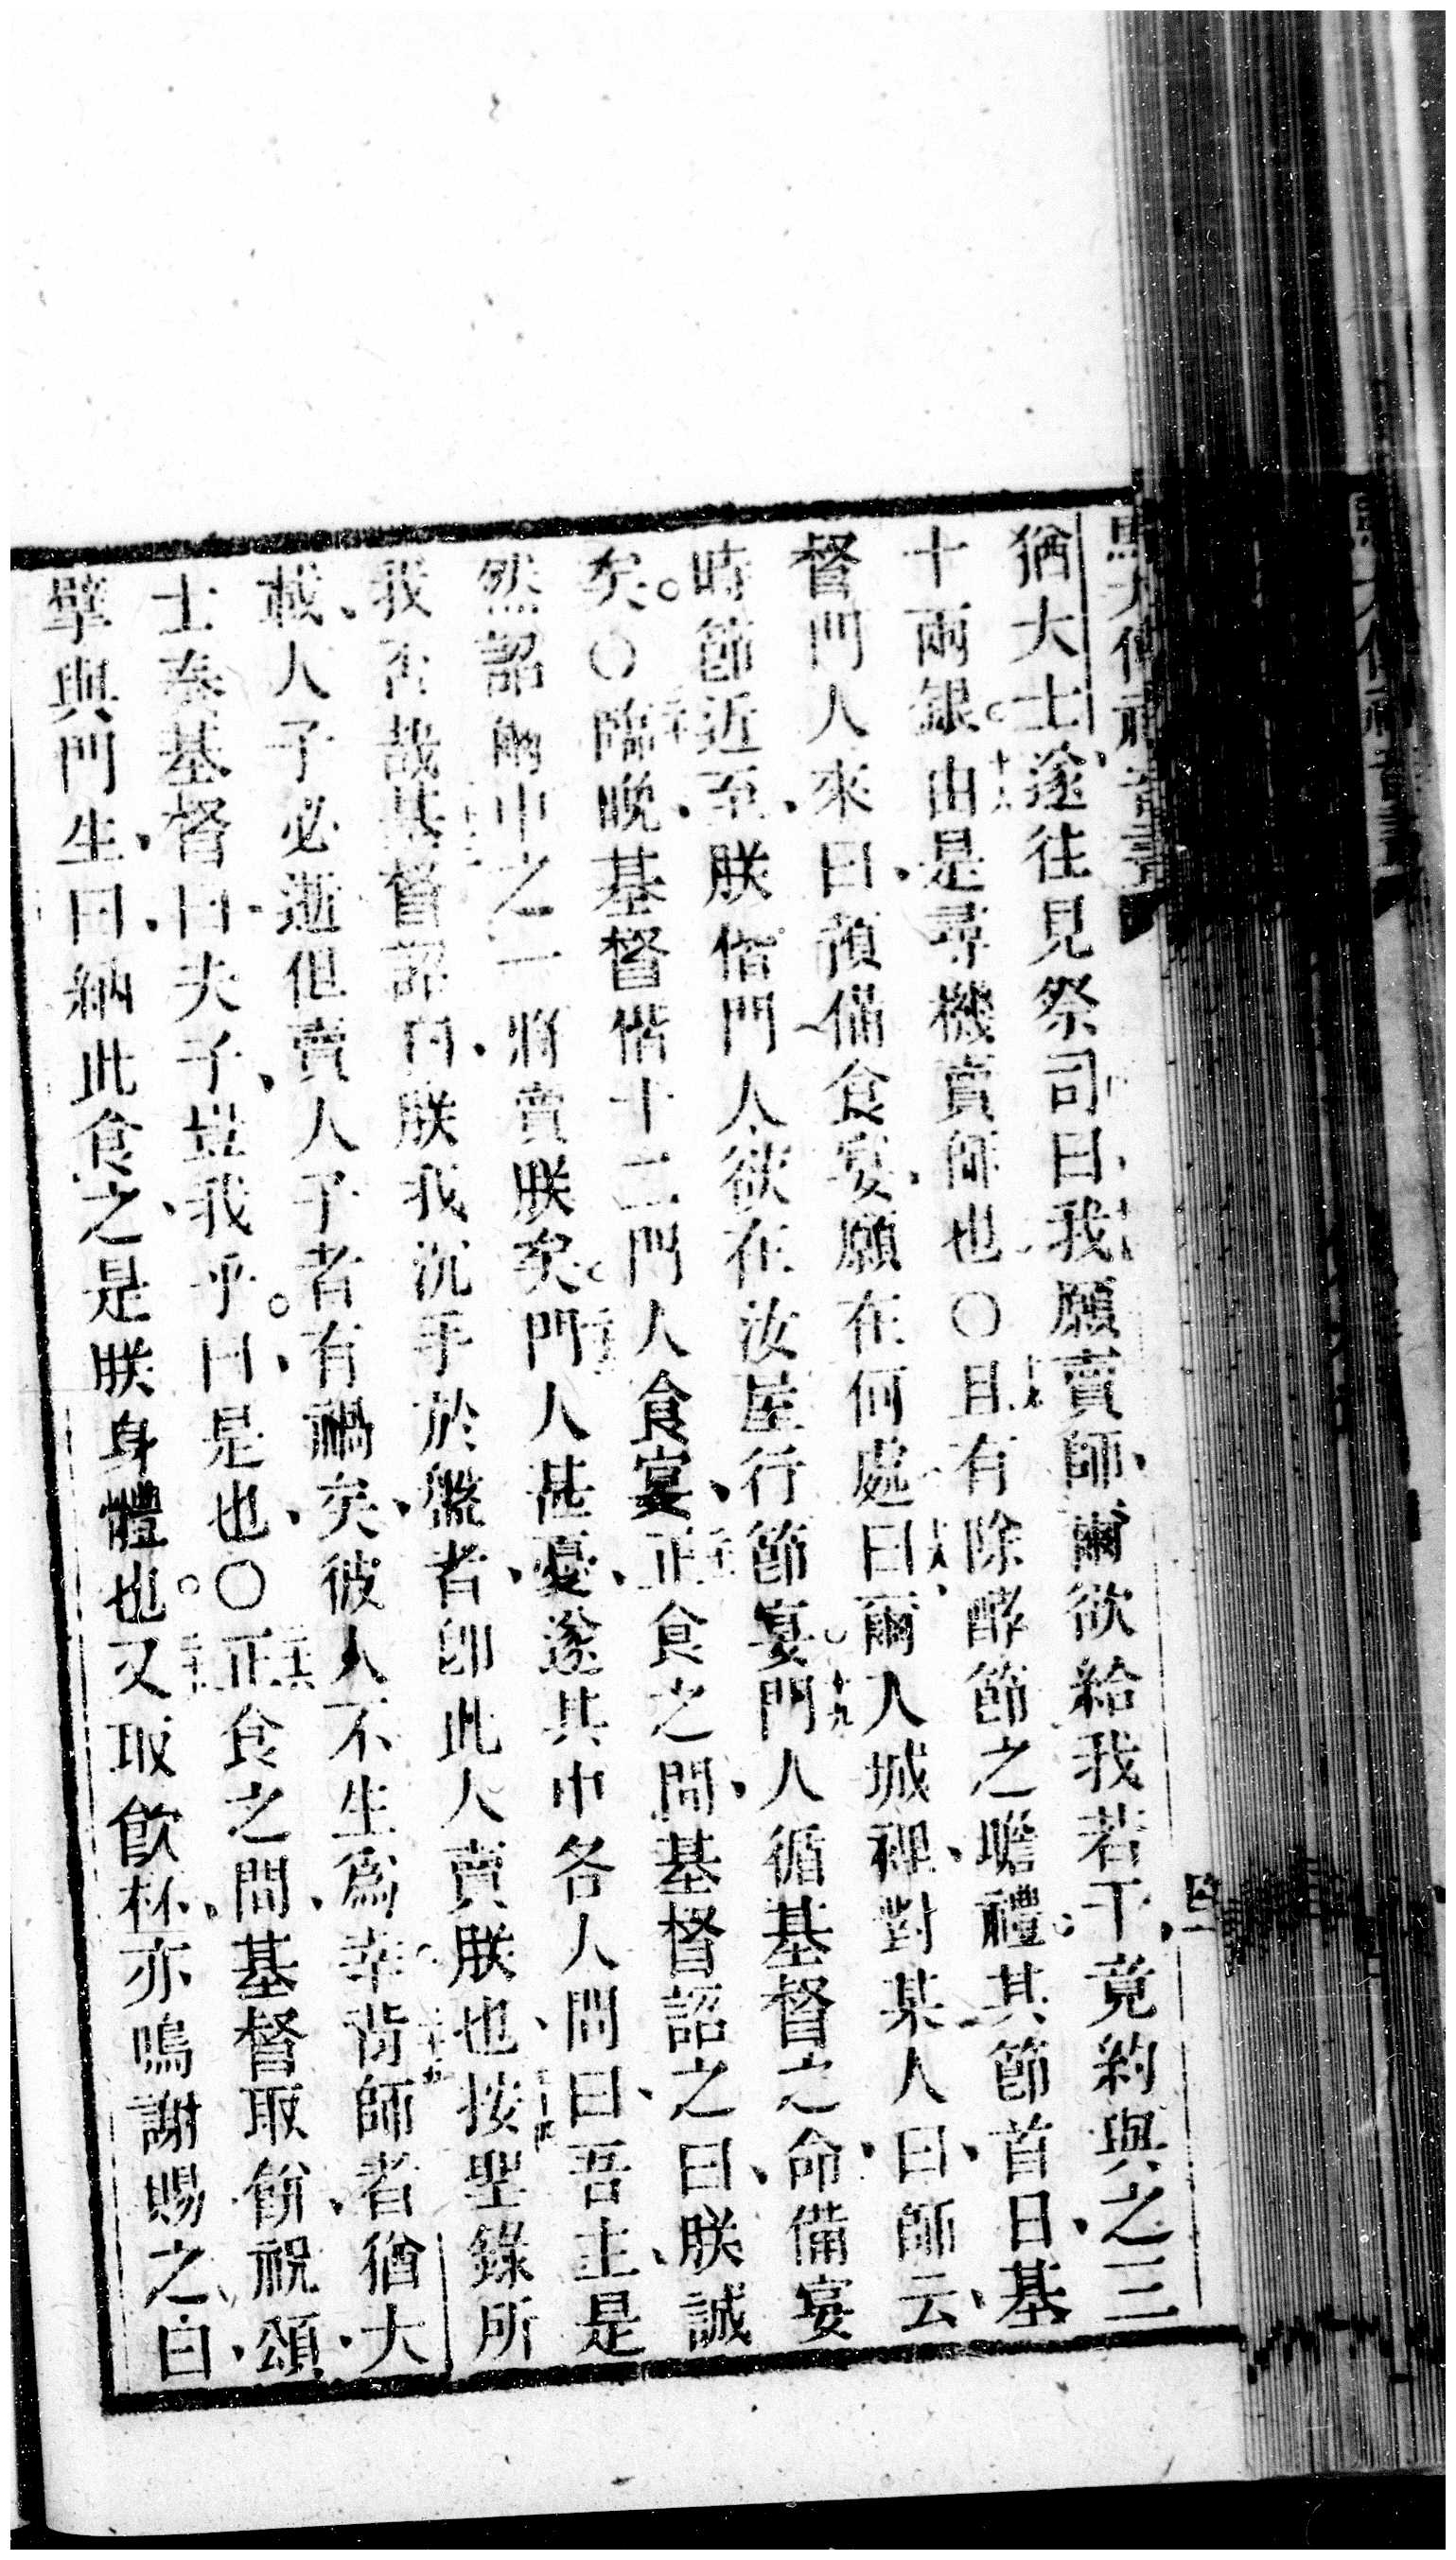 馬太傳福音書
猶大士遂往見祭司曰我願賣師、爾欲給我若干、竟約與之三
十兩銀。由是尋機賣師也○且有除酵節之瞻禮。其節首日、基
督門人來曰、預備食宴、願在何處、曰、爾入城裡、對某人曰、師云、
時節近至、朕偕門人欲在汝屋行節宴。門人循基督之命、備宴
矣。○臨晚、基督偕十二門人食宴、正食之間、基督詔之曰、朕誠
然詔爾中之一將賣朕矣。門人甚憂、遂其中各人問曰、吾主、是
我否哉基督詔曰、朕我沉手於盤者、卽此人賣朕也、按聖錄所
載、人子必逝但賣人子者有禍矣、彼人不生爲幸背師者猶大
士奉基督曰、夫子、豈我乎。曰、是也、○正食之間、基督取餅、祝頌、
擘與門生、曰、納此食之、是朕身體也。又取飮杯、亦鳴謝賜之、曰、